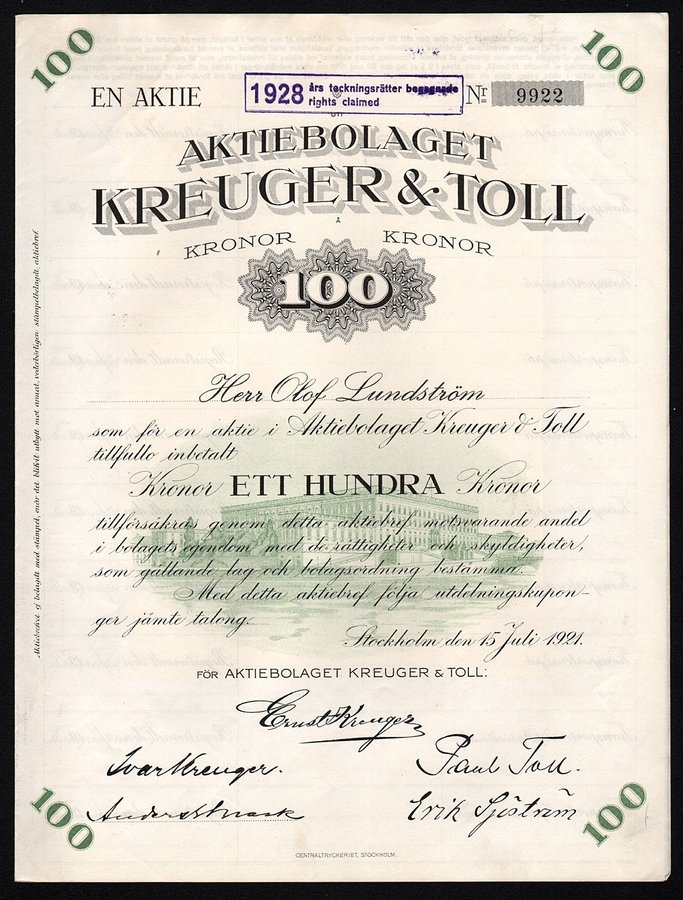 100
100
EN AKTIE
1928 års teckningsrätter begagnade
rights claimed
Nr 9922
AKTIEBOLAGET
KREUGER & TOLL
Å
KRONOR KRONOR
100
Herr Olof Lundström
som för en aktie i Aktiebolaget Kreuger & Toll
tillfullo inbetalt
Kronor ETT HUNDRA Kronor
tillförsäkras genom detta aktiebref motsvarande andel
i bolagets egendom med de rättigheter och skyldigheter,
som gällande lag och bolagsordning bestämma.
Med detta aktiebref följa utdelningskupon-
ger jämte talong.
Stockholm den 15 Juli 1921.
FÖR AKTIEBOLAGET KREUGER & TOLL:
Ernst Kreuger
Ivar Kreuger.
Paul Toll.
Anders
Erik Sjöström
100
100
CENTRALTRYCKERIET, STOCKHOLM.
Aktiebrefvet ej belagdt med stämpel, när det blifvit utbytt mot annat, vederbörligen stämpelbelagdt, aktiebref.